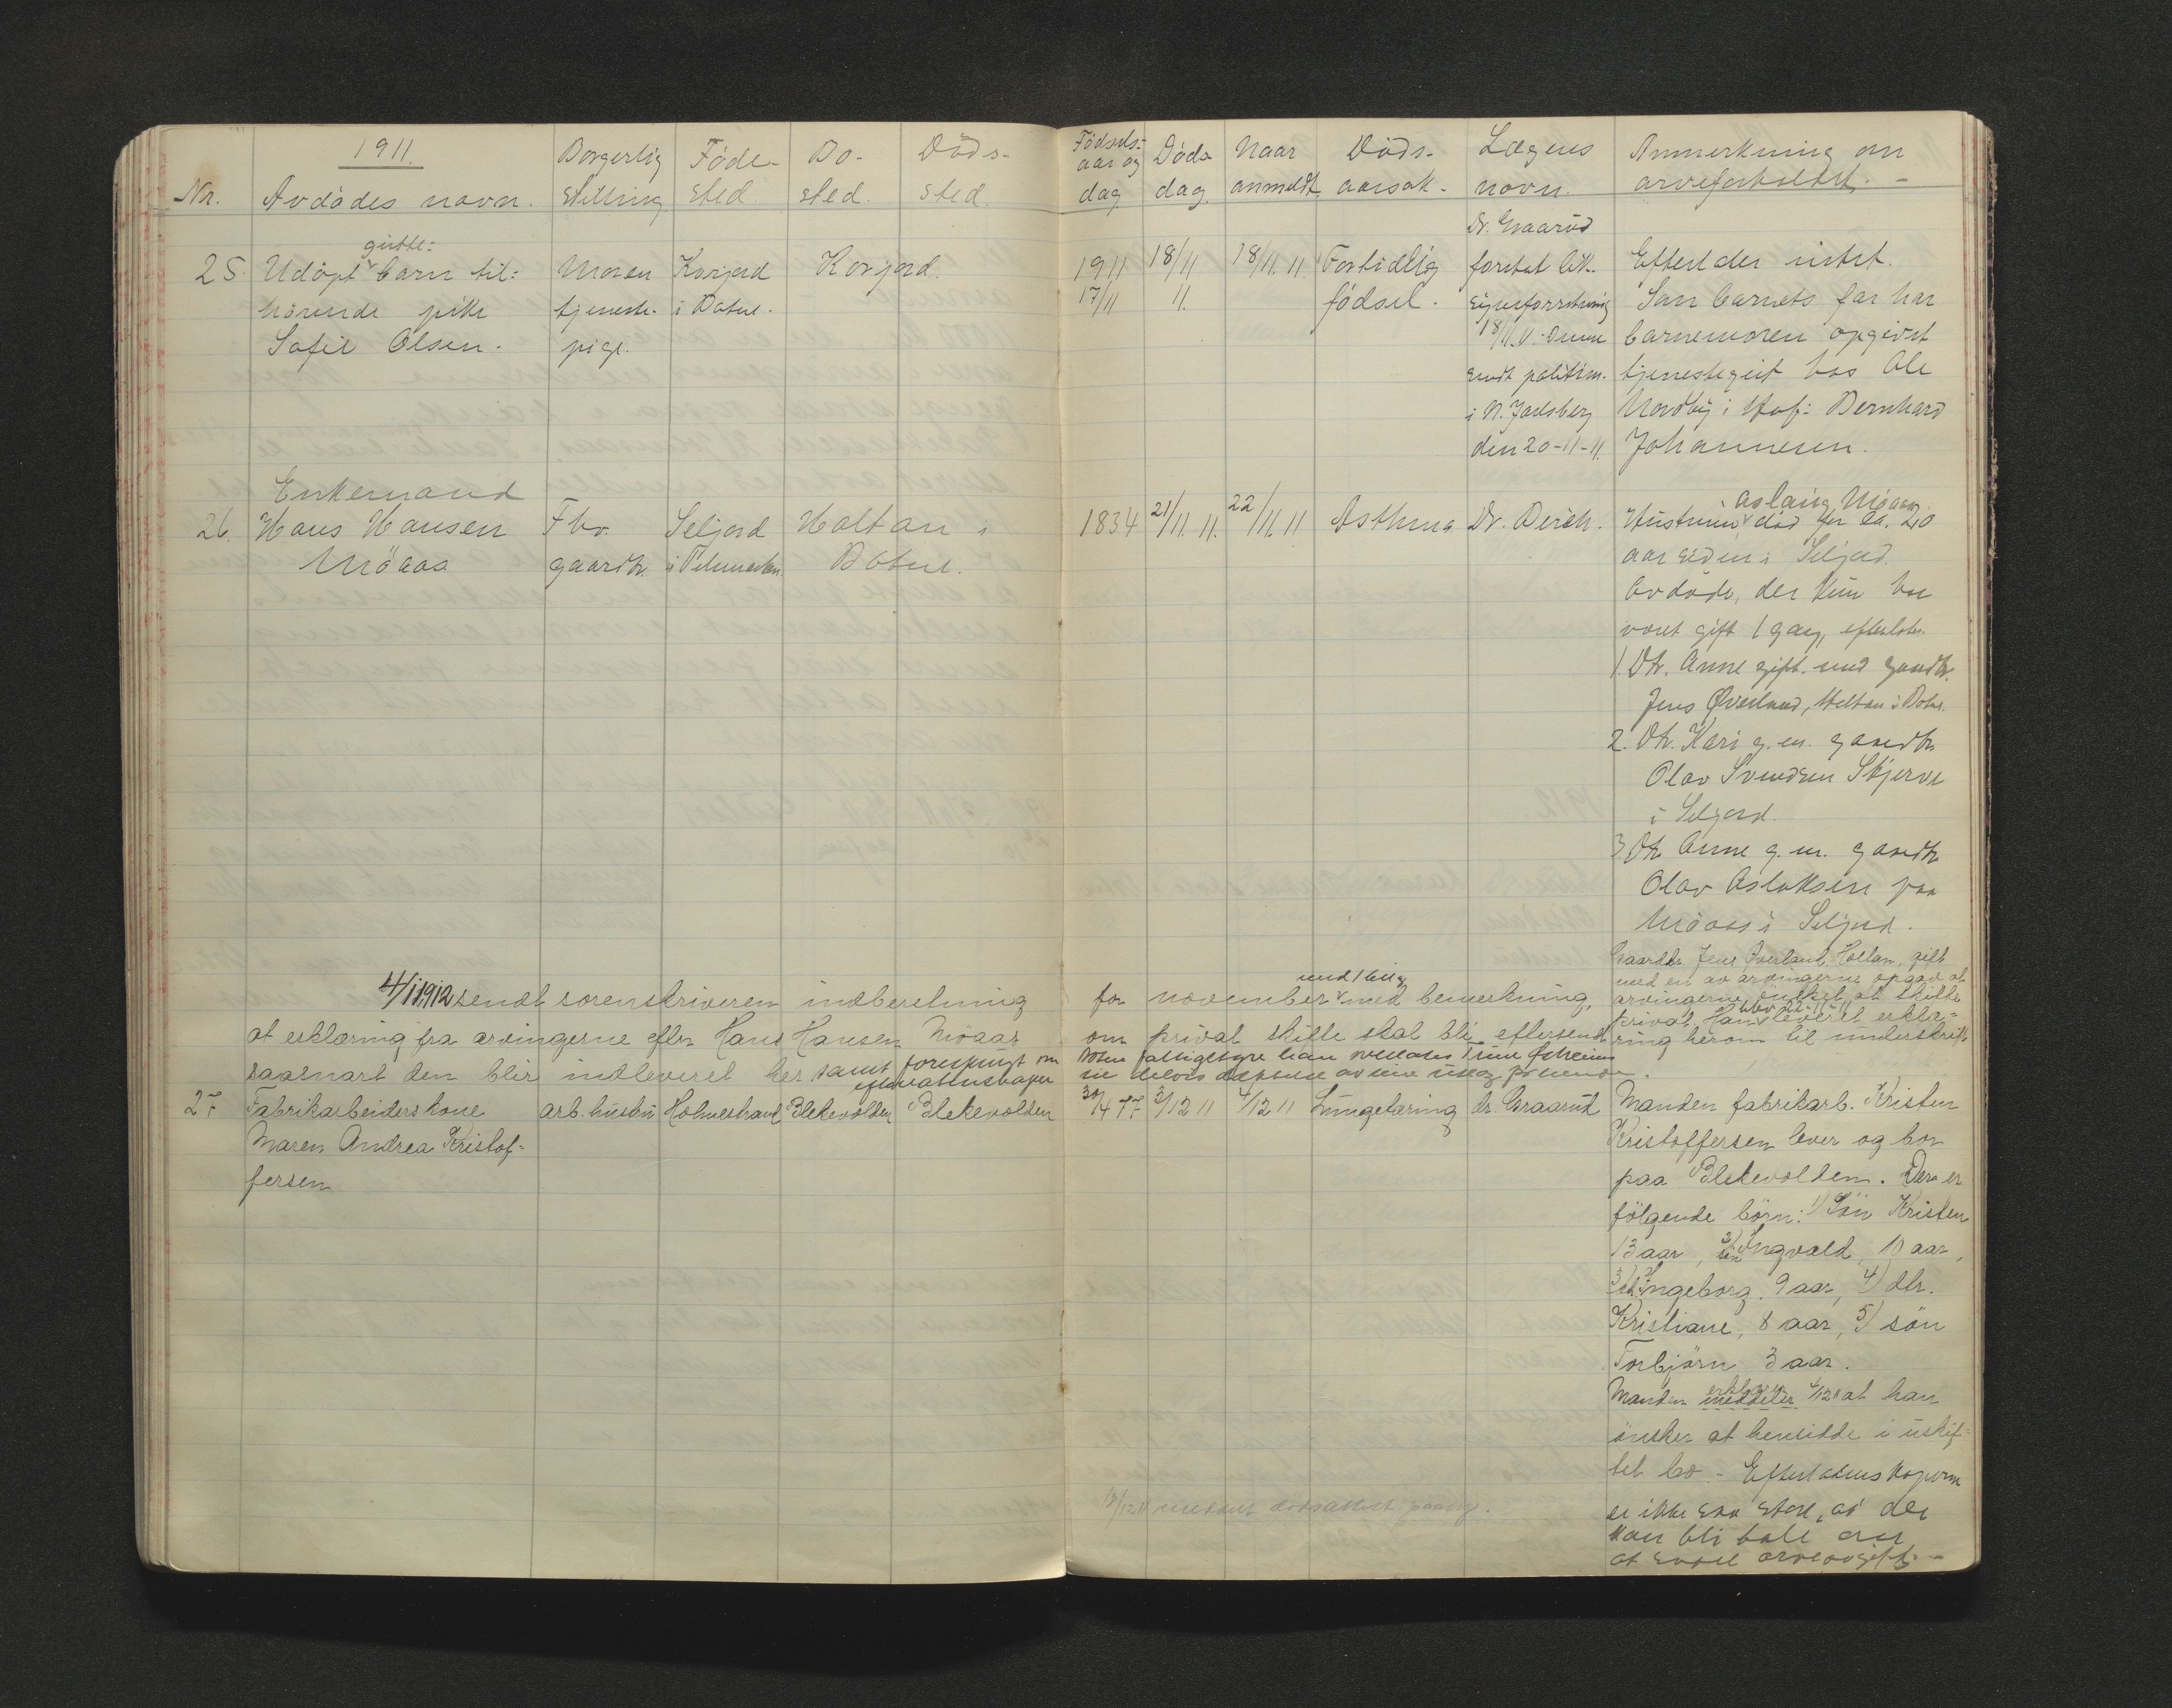 1911.
Nr.
Avdødes navn.
Borgerlig
stilling
Føde-
sted
Bo-
sted.
Døds-
sted.
Fødsels-
aar og
dag
Døds
dag.
Naar
anmeldt
Døds-
aarsak.
Lægens
navn.
Anmerkning om
arveforholdet. -
25.
gutte:
Udøpt barn til:
hørende pike
Sofie Olsen.
Moren
tjeneste-
pige.
Korjord
i Botne.
Korjord.
1911
17/11
18/11
11.
18/11.11
Fortidlig
fødsel.
Dr. Graarud
foretat lik.
Denne
sendt politim.
i N. Jarlsberg
den 20-11-11.
Efterlder intet.
Som barnets far har
barnemoren opgivet
tjenestegut hos Ole
Nordby i Hof: Bernhard
Johannesen.
Enkemand
26.
Hans Hansen
Möaas
Fhv.
gaardbr.
Seljord
i Telemarken.
Holtan i
Botne.
1834
21/11.11.
22/11.11
Asthma
Dr. Oerch.
Aslaug Möaas
Hustruen død for ca. 20
aar siden i Seljord.
Avdøde, der kun har
været gift 1 gang, efterlater.
1. Dtr. Anne gift med gaardbr.
Jens Øverland, Holtan i Botne.
2. Dtr. Kari g. m. gaardbr.
Olav Svendsen Skjerve
i Seljord.
3 Dtr. Anne g. m. gaardbr
Olav Aslaksen paa
Möaas i Seljord.
Gaardbr Jens Øverland, Holtan, gift
med en av arvingerne opgav at
arvingerne ønsket at skifte
privat. Ham blev levert erklæ-
ring herom til underskrift
4/1 1912 sendt sorenskriveren indberetning
for november med 1 bilag med bemerkning,
at erklæring fra arvingerne efter Hans Hansen Möaas
om privat skifte skal bli eftersendt
saasnart den blir indleveret her samt forespurgt om
27
Fabrikarbeiderskone
Maren Andrea Kristof-
fersen
arb. hustru
Holmestrand
Blekevolden
Blekevolden
30/4 77.
3/12 11
4/12 11
Lungetæring
dr. Graarud
Manden fabrikarb. Kristen
Kristoffersen lever og bor
paa Blekevolden. Der er
følgende børn: 1) Søn Kristen
13 aar, 2) søn Ingvald, 10 aar,
3) Ingeborg. 9 aar, 4) dtr.
Kristiane, 8 aar, 5) søn
Torbjørn 3 aar.
Manden erklærer meddeler 4/12 11 at han
ønsker at hensidde i uskif-
tet bo. - Efterladenskaperne
er ikke saa store, at der
kan bli tale om
at svare arveavgift. -